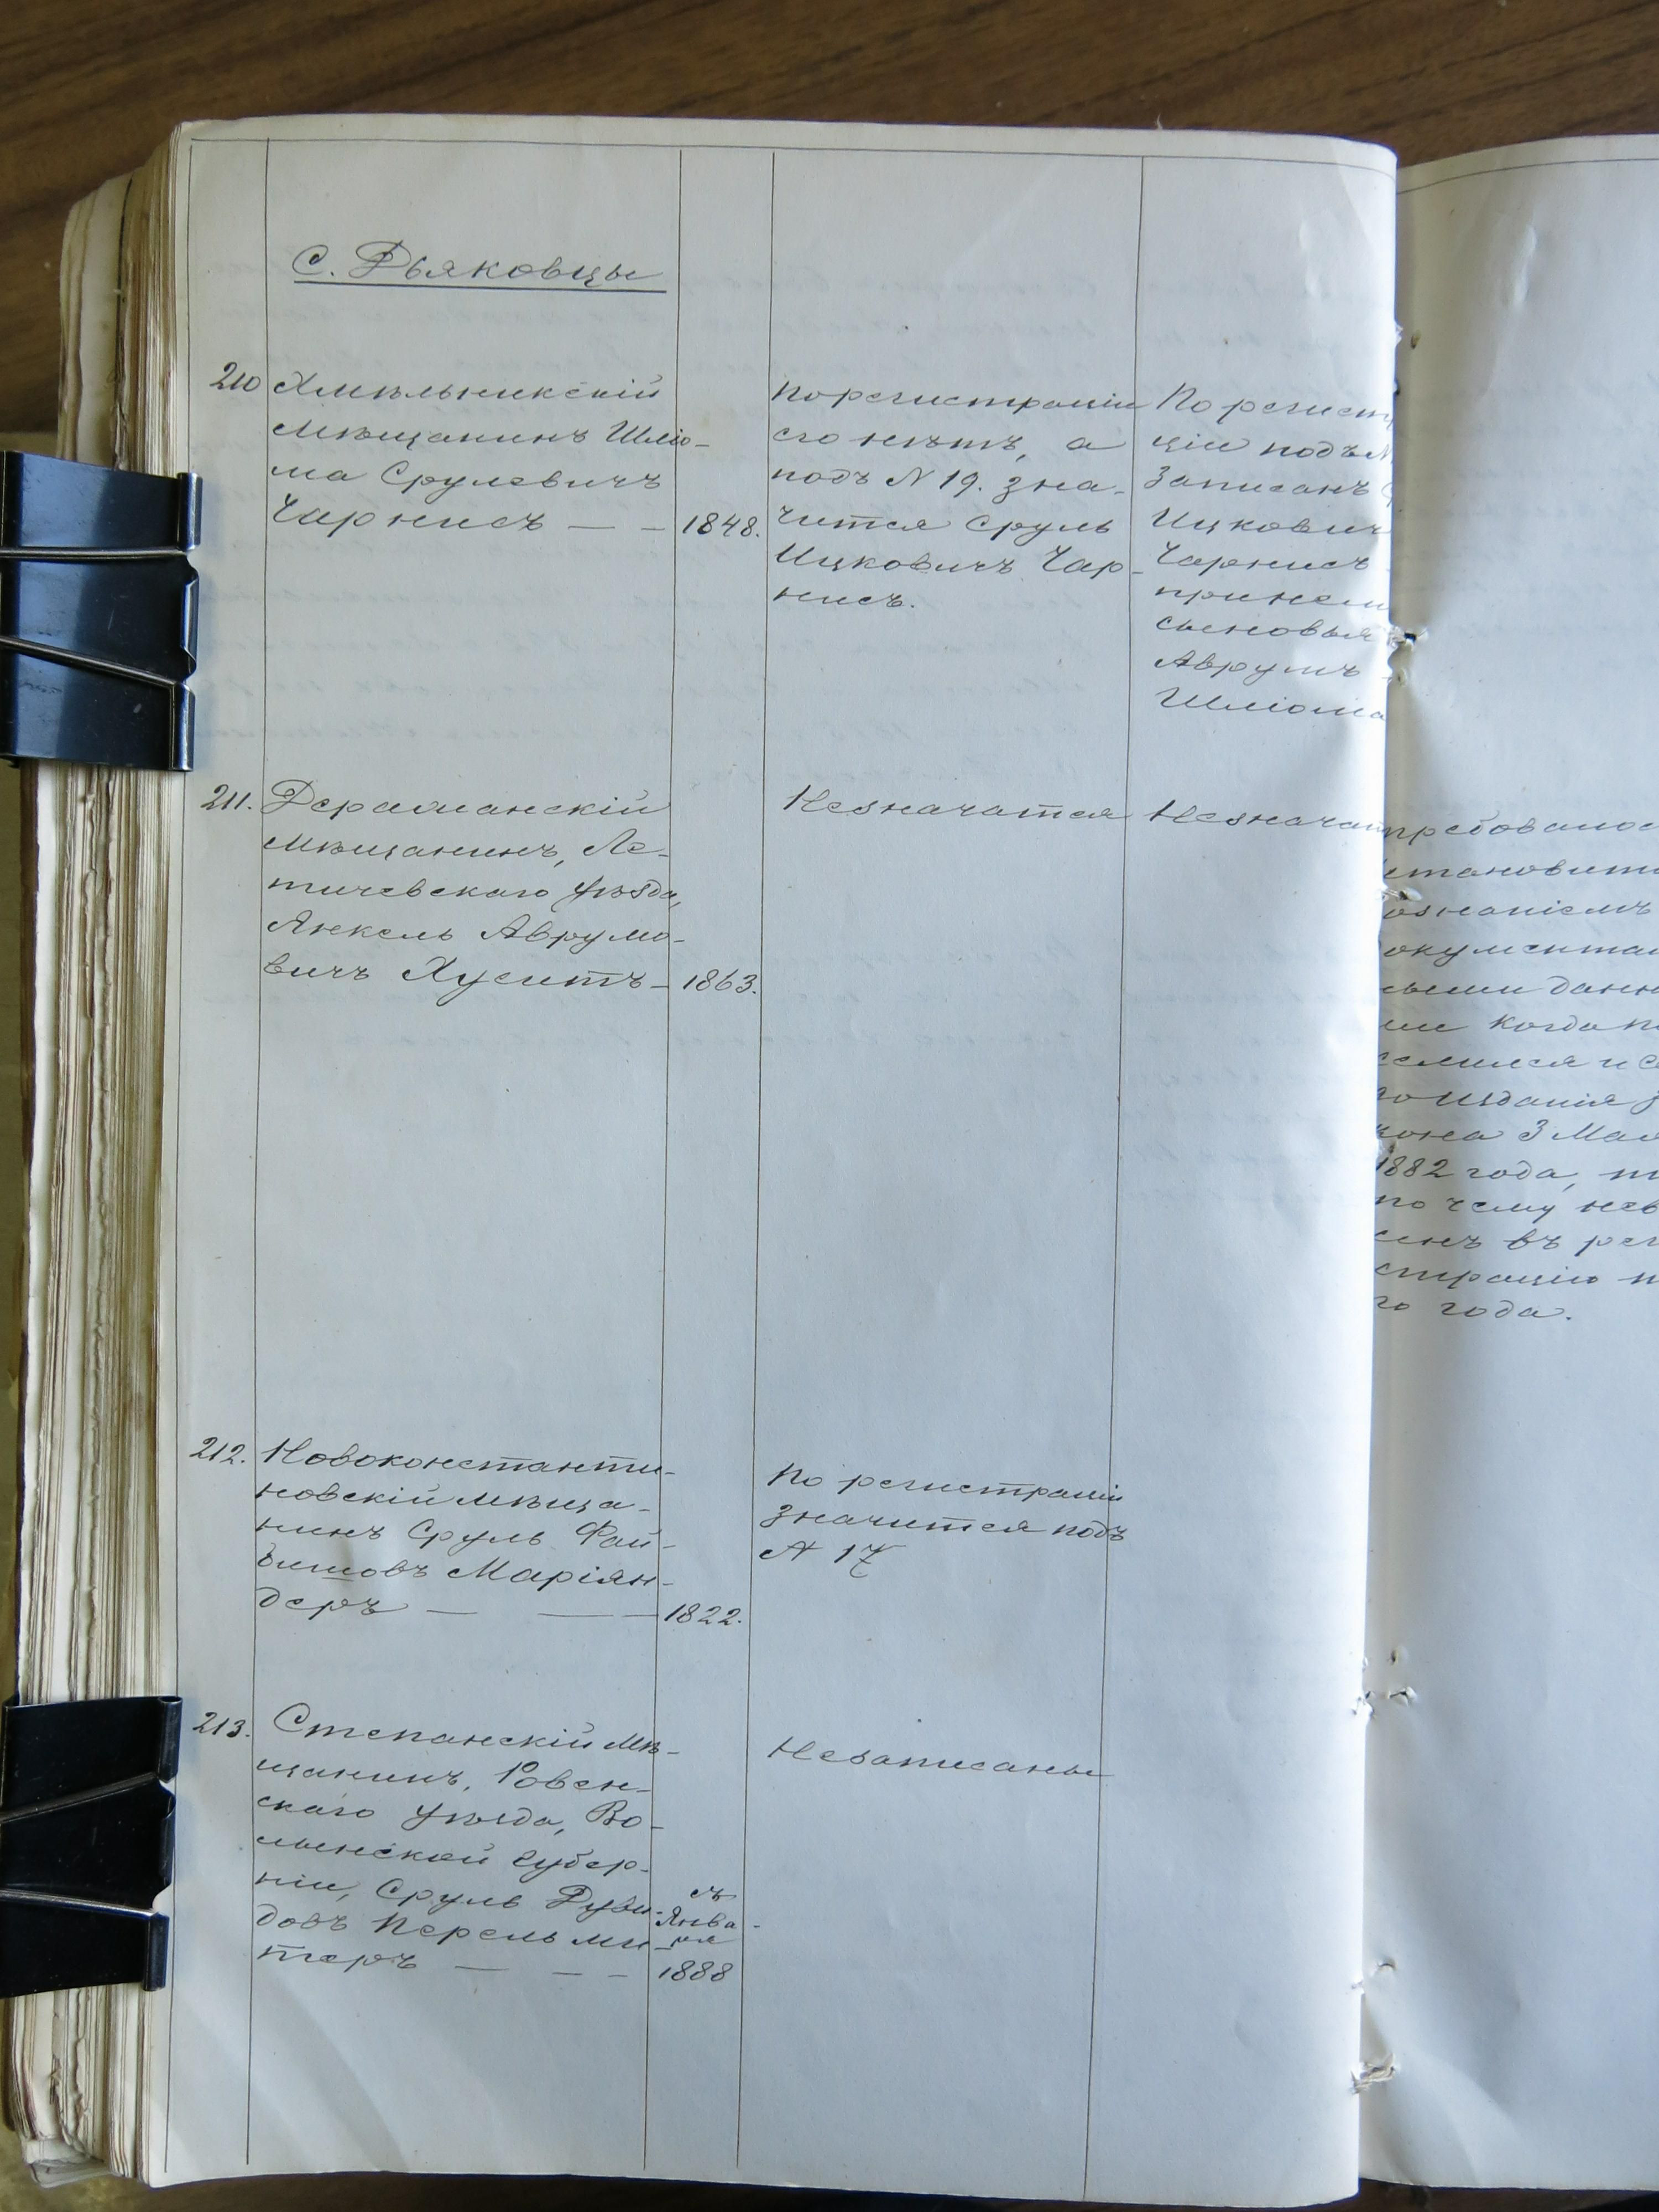 С. Дьяковцы
210
Хмѣльникскій
мѣщанинъ Шліо-
ма Срулевичъ
Чарнисъ — — 1848.
По регистраціи
его нѣтъ, а
подъ N 19. зна-
чится Сруль
Ицковичъ Чар-
нисъ.
По регист
ціи подъ N
записанъ
Ицкович
Чарнисъ
при нем
сыновья
Аврумъ
Шліома
211.
Деражнянскій
мѣщанинъ, Ле-
тичевскаго уѣзда,
Янкель Аврумо-
вичъ Хуситъ — 1863.
Незначатся
Незначат
требовалос
становит
ознаніемъ
окумента
ными данн
ми когда п
селился и с
до изданія з
кона 3 Мая
1882 года,
почему нев
сенъ въ рег
страцію
го года.
212.
Новоконстанти-
новскій мѣща-
нинъ Сруль Фай-
бишовъ Маріян-
деръ — — 1822.
По регистраціи
значится подъ
№ 17
213.
Степанскій мѣ-
щанинъ, Ровен-
скаго уѣзда, Во-
лынской губер-
ніи, Сруль Дуви-
довъ Перельми-
теръ — — —
съ
Янва-
ря
1888
Незаписаны